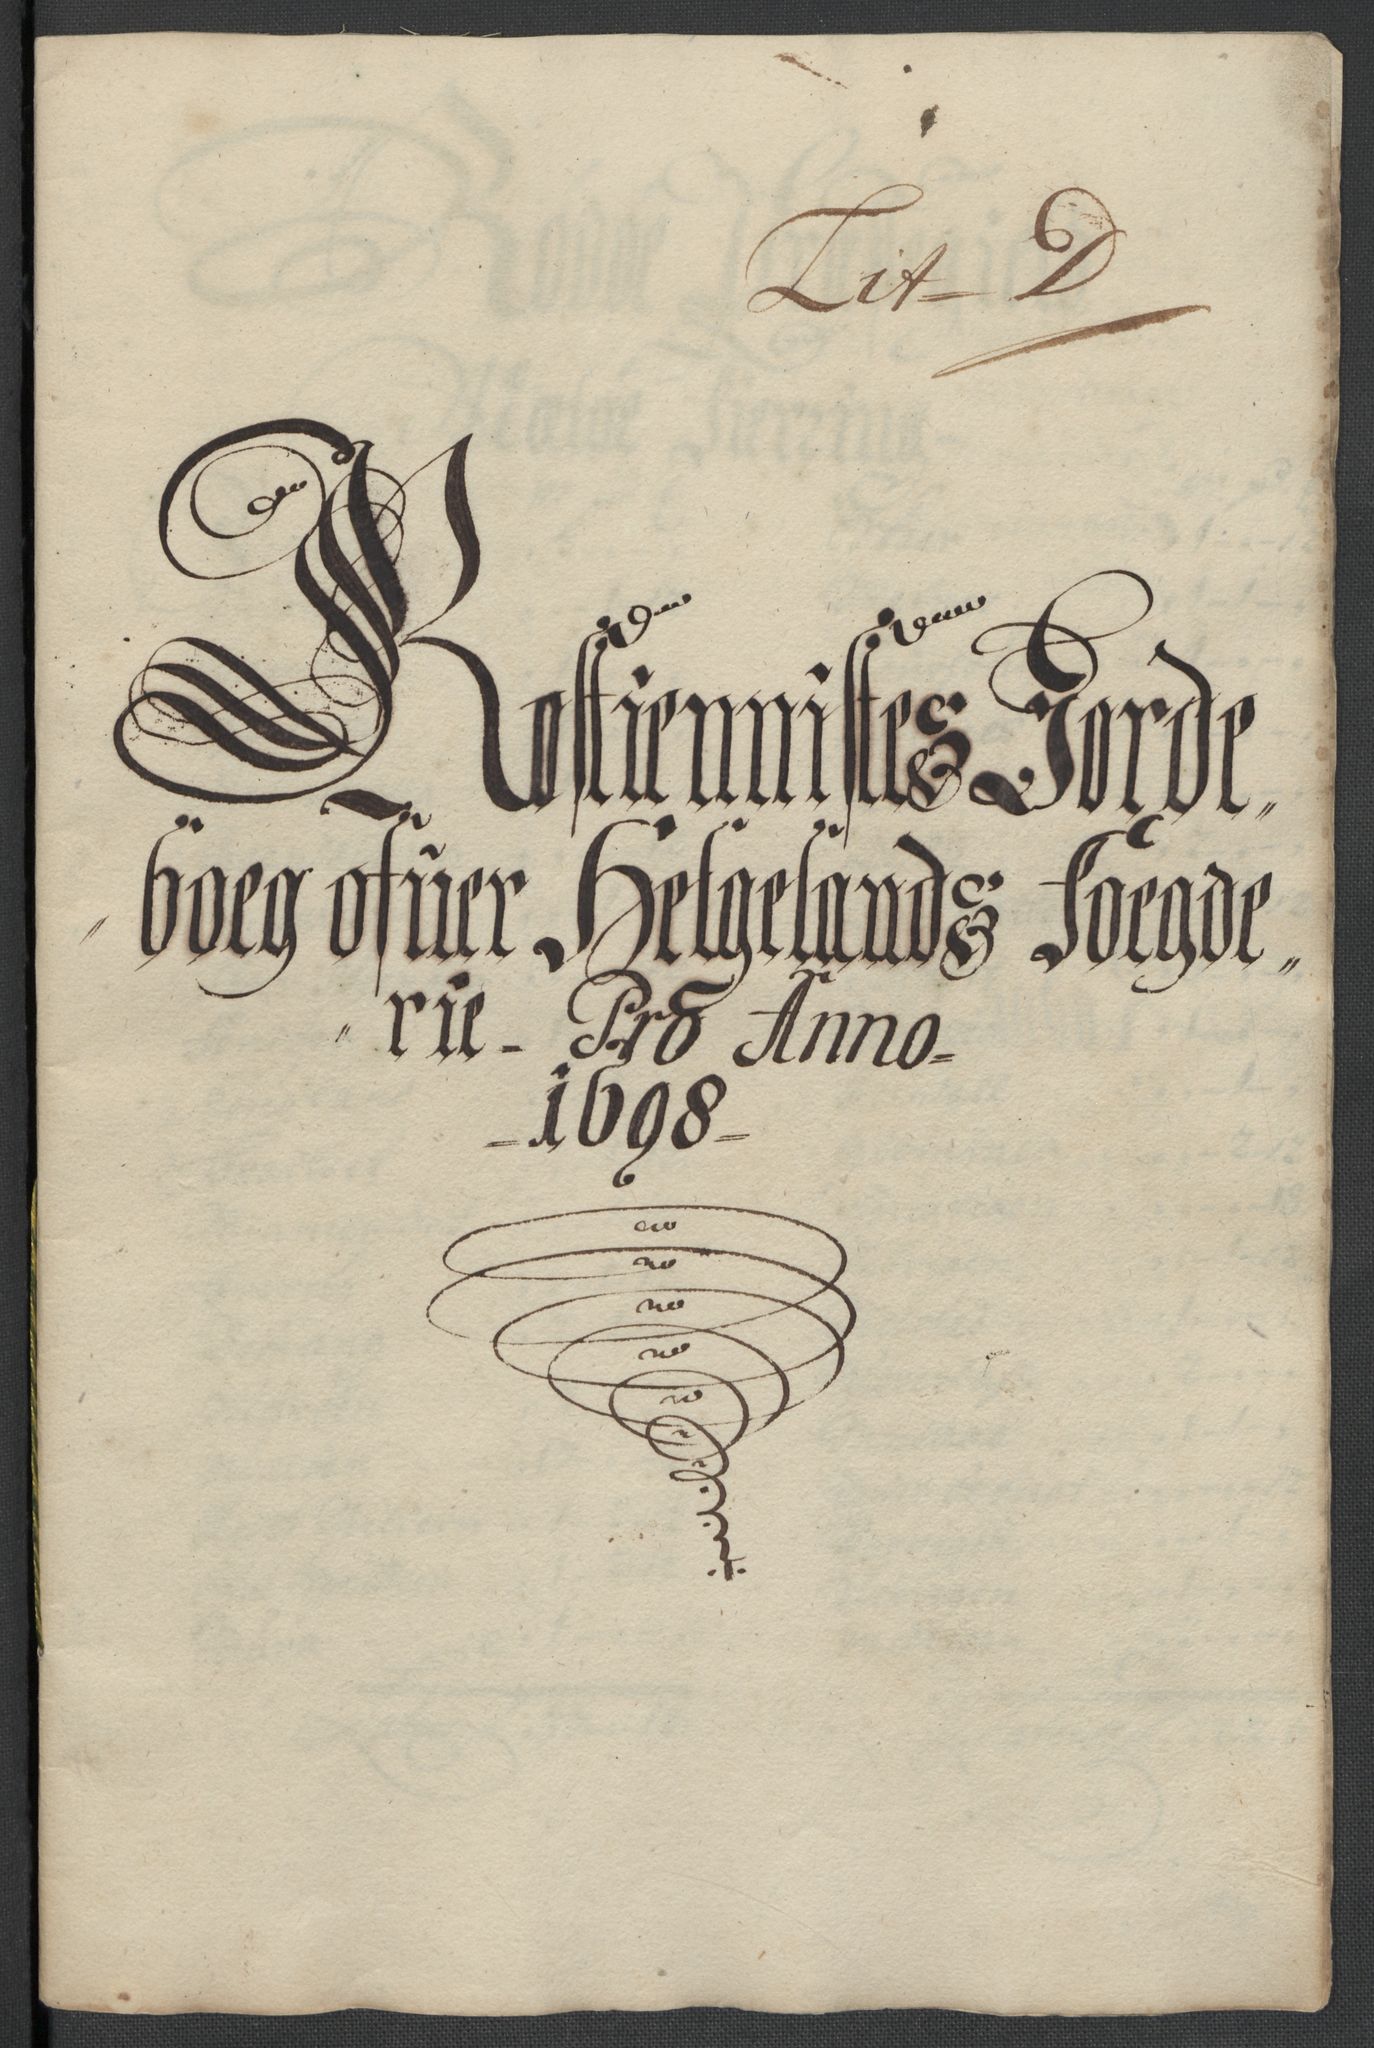 Lit– D
Rostiennistes Jorde„
„boeg ofuer Helgelands Foegde„
„rie– Pro Anno–
–1698–